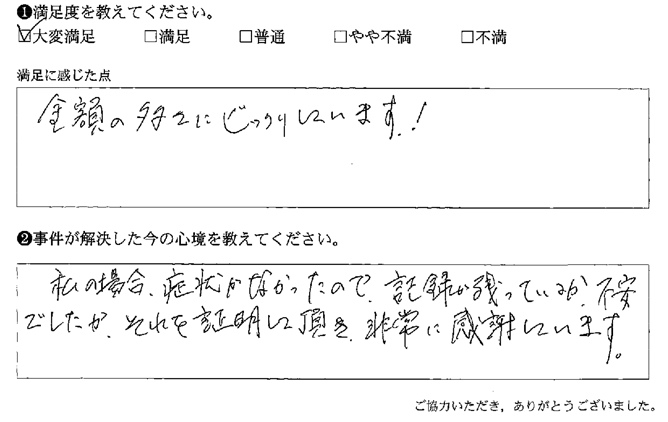 ❶満足度を教えてください。
☑大変満足 □満足 □普通 □やや不満 □不満
満足に感じた点
金額の多さにびっくりしています!
❷事件が解決した今の心境を教えてください。
私の場合、症状がなかったので、記録が残っているか、不安
でしたが、それを証明して頂き、非常に感謝しています。
ご協力いただき，ありがとうございました。